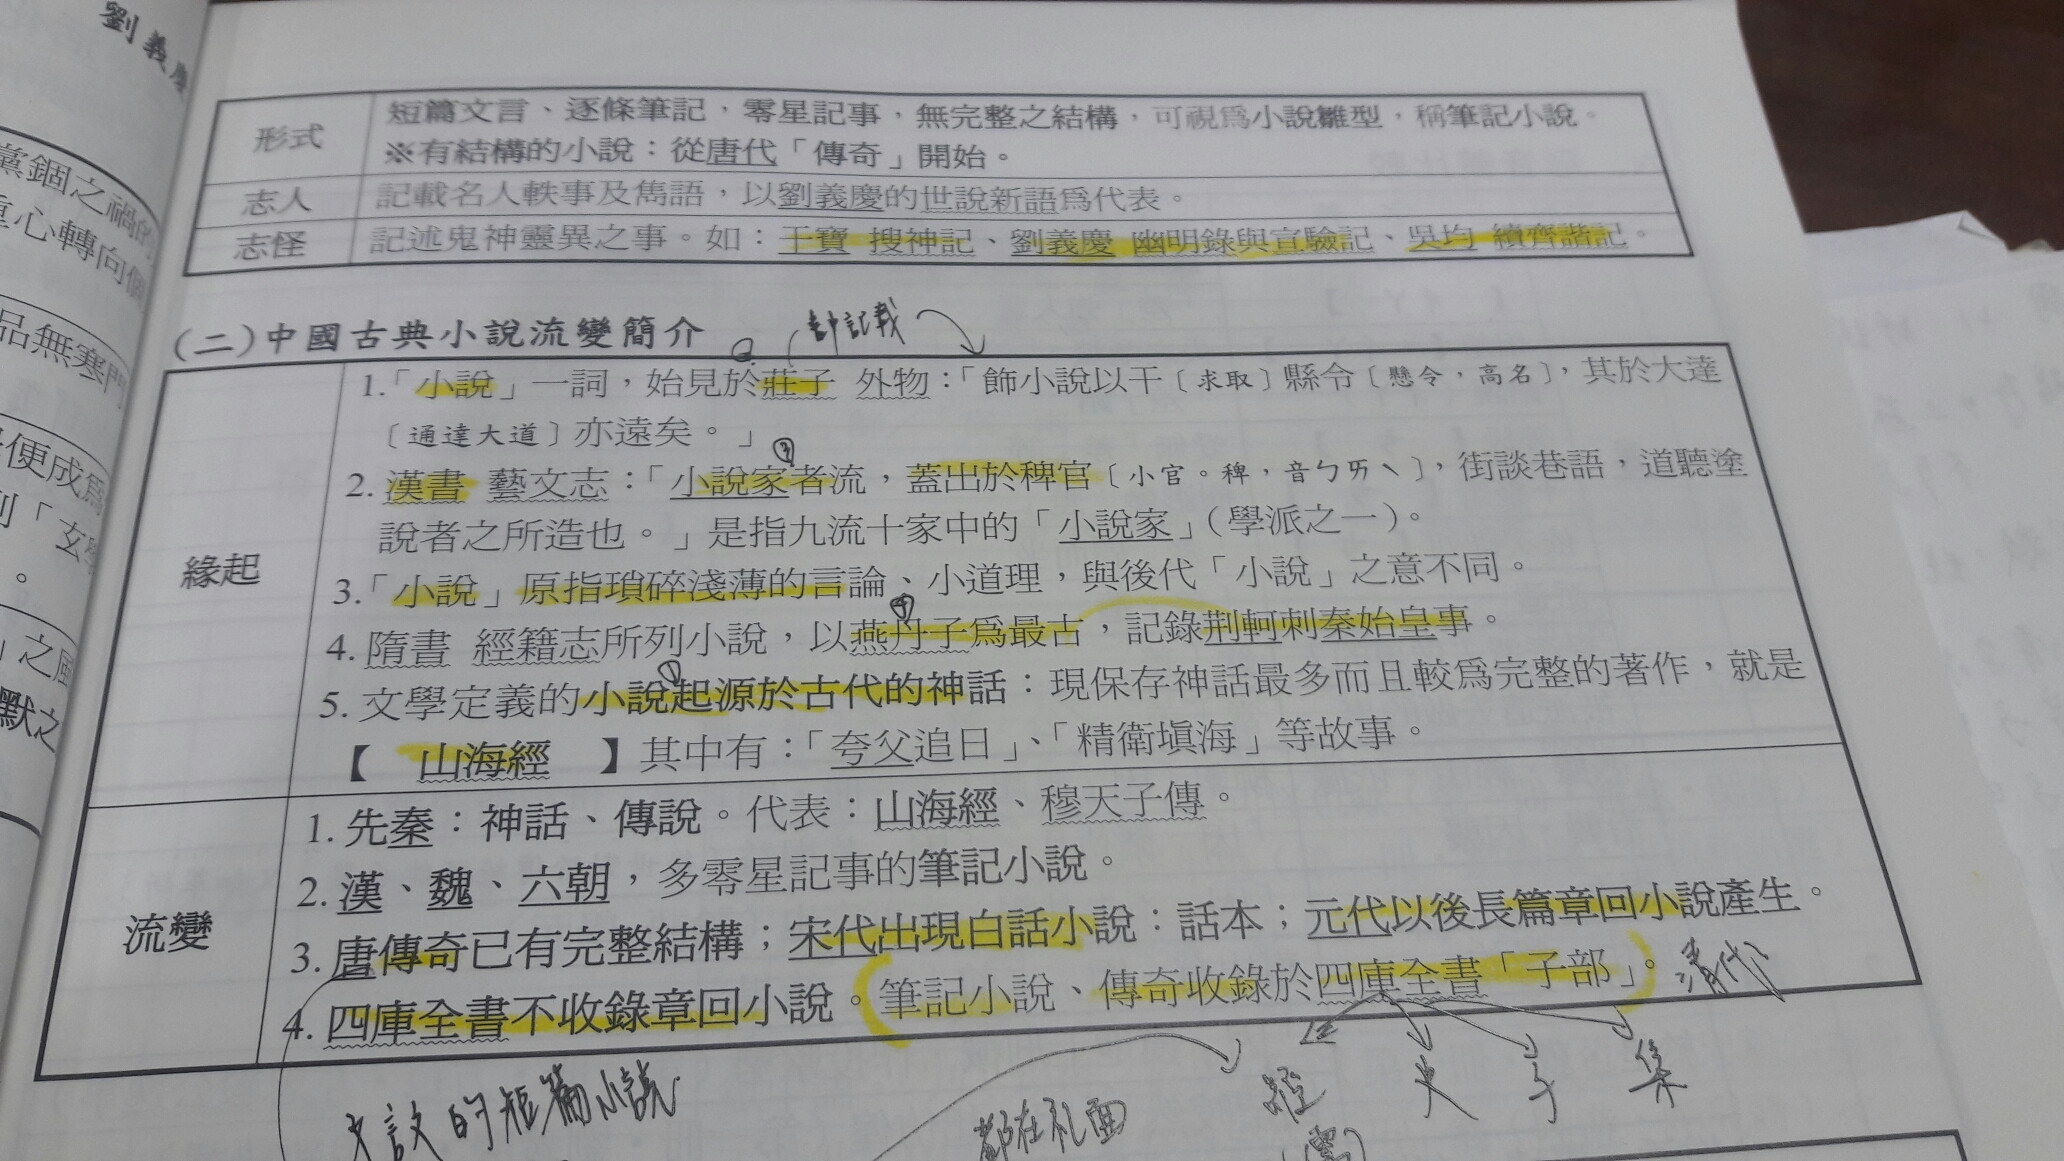 劉義慶
黨錮之禍的
重心轉向個
品無寒門
便成爲
「玄學
。
」之風
默之
形式
短篇文言、逐條筆記,零星記事,無完整之結構,可視爲小說雛型,稱筆記小說。
※有結構的小說:從唐代「傳奇」開始。
志人
記載名人軼事及雋語,以劉義慶的世說新語爲代表。
志怪
記述鬼神靈異之事。如:干寶 搜神記、劉義慶 幽明錄與宣驗記、吳均 續齊諧記。
(二)中國古典小說流變簡介
記載
緣起
1.「小說」一詞,始見於莊子 外物:「飾小說以干〔求取〕縣令〔懸令,高名〕,其於大達
〔通達大道〕亦遠矣。」
2. 漢書 藝文志:「小說家者流,蓋出於稗官〔小官。稗,音ㄅㄞˋ〕,街談巷語,道聽塗
說者之所造也。」是指九流十家中的「小說家」(學派之一)。
3.「小說」原指瑣碎淺薄的言論、小道理,與後代「小說」之意不同。
4. 隋書 經籍志所列小說,以燕丹子爲最古,記錄荆軻刺秦始皇事。
5. 文學定義的小說起源於古代的神話:現保存神話最多而且較爲完整的著作,就是
【 山海經 】其中有:「夸父追日」、「精衛塡海」等故事。
流變
1. 先秦:神話、傳說。代表:山海經、穆天子傳。
2. 漢、魏、六朝,多零星記事的筆記小說。
3. 唐傳奇已有完整結構;宋代出現白話小說:話本;元代以後長篇章回小說產生。
4. 四庫全書不收錄章回小說。筆記小說、傳奇收錄於四庫全書「子部」。
清代
經 史 子 集
文言文的短篇小說
都在礼面